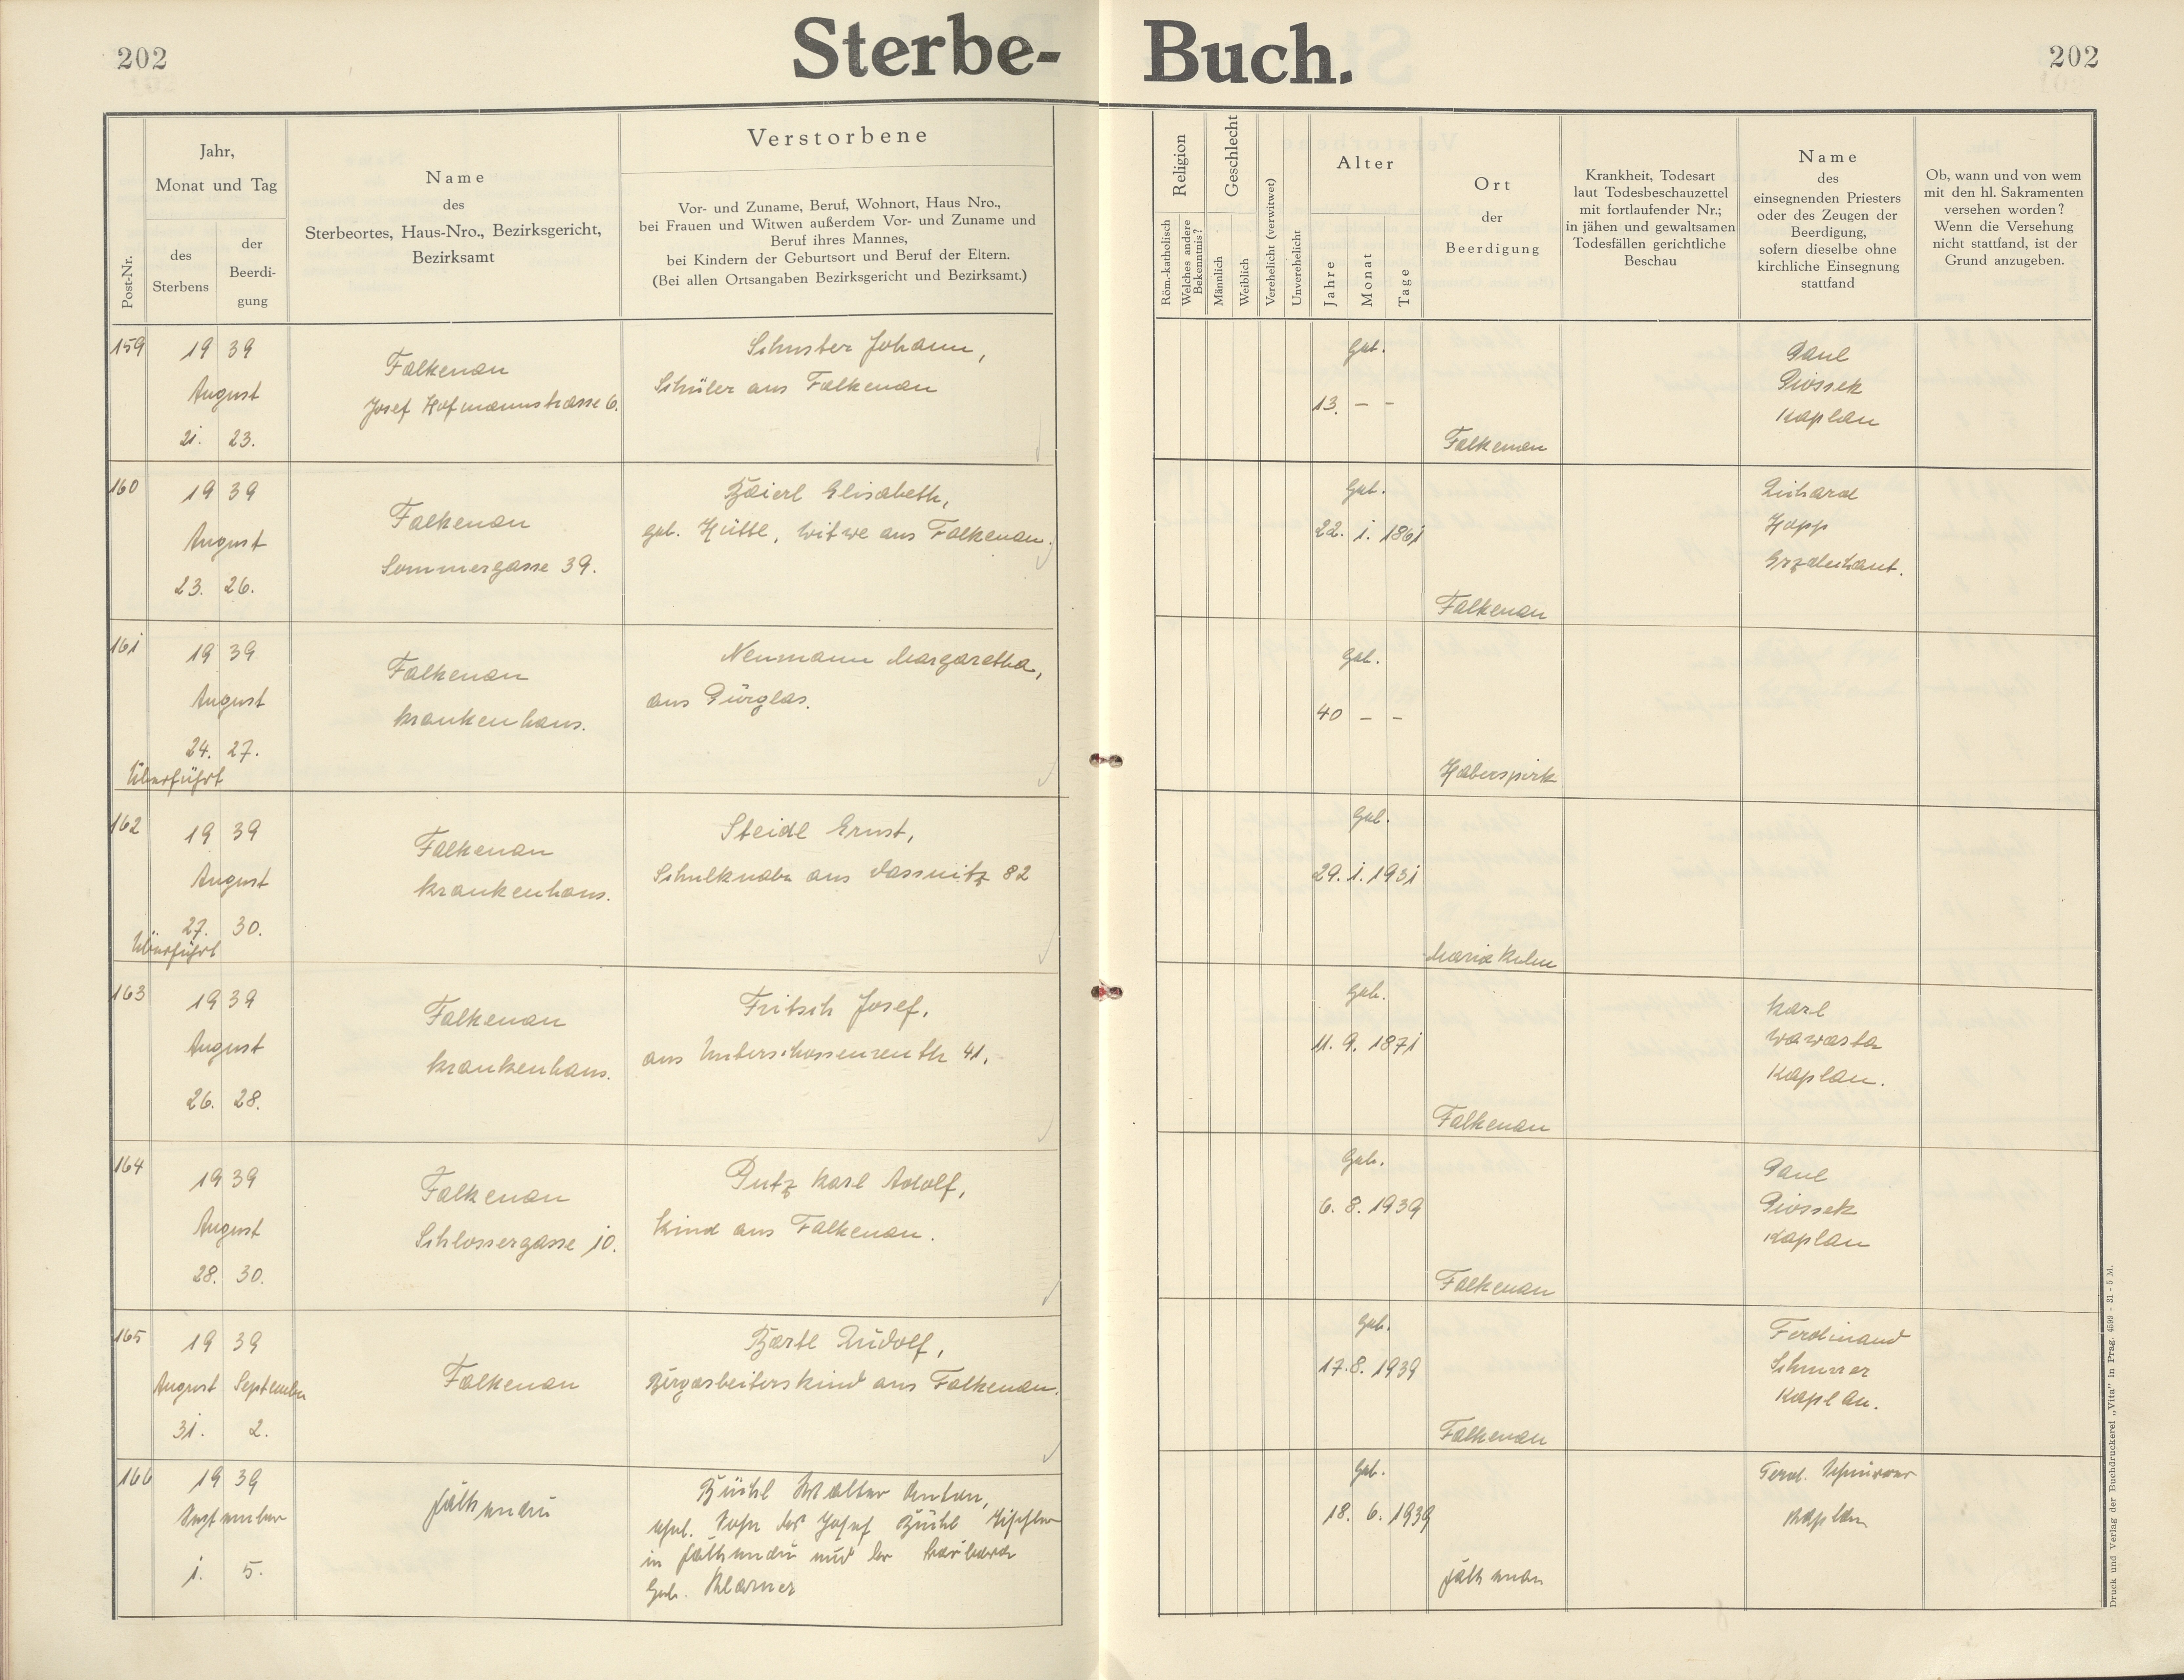 202
Sterbe- Buch.
202
Post-Nr.
Jahr,
Monat und Tag
des
Sterbens
der
Beerdi-
gung
Name
des
Sterbeortes, Haus-Nro., Bezirksgericht,
Bezirksamt
Verstorbene
Vor- und Zuname, Beruf, Wohnort, Haus Nro.,
bei Frauen und Witwen außerdem Vor- und Zuname und
Beruf ihres Mannes,
bei Kindern der Geburtsort und Beruf der Eltern.
(Bei allen Ortsangaben Bezirksgericht und Bezirksamt.)
Religion
Röm.-katholisch
Welches andere
Bekenntnis?
Geschlecht
Männlich
Weiblich
Verehelicht (verwitwet)
Unverehelicht
Alter
Jahre
Monat
Tage
Ort
der
Beerdigung
Krankheit, Todesart
laut Todesbeschauzettel
mit fortlaufender Nr.;
in jähen und gewaltsamen
Todesfällen gerichtliche
Beschau
Name
des
einsegnenden Priesters
oder des Zeugen der
Beerdigung,
sofern dieselbe ohne
kirchliche Einsegnung
stattfand
Ob, wann und von wem
mit den hl. Sakramenten
versehen worden?
Wenn die Versehung
nicht stattfand, ist der
Grund anzugeben.
159
19 39
August
21. 23.
Falkenau
Josef Hofmannstrasse 6.
Schuster Johann,
Schüler aus Falkenau
Geb.
13. – –
Falkenau
Paul
Piossek
Kaplan
160
19 39
August
23. 26.
Falkenau
Sommergasse 39.
Baierl Elisabeth,
geb. Hüttl, Witwe aus Falkenau.
Geb.
22. 1. 1861
Falkenau
Richard
Hopp
Erzdechant.
161
19 39
August
24. 27.
Überführt
Falkenau
Krankenhaus.
Neumann Margaretha,
aus Pürglas.
Geb.
40 – –
Haberspirk
162
19 39
August
27. 30.
Überführt
Falkenau
Krankenhaus.
Steidl Ernst,
Schulknabe aus Dassnitz 82
Geb.
29. 1. 1931
Maria Kulm
163
19 39
August
26. 28.
Falkenau
Krankenhaus.
Fritsch Josef,
aus Unterschossenreuth 41.
Geb.
11. 9. 1871
Falkenau
Karl
Wawasta
Kaplan.
164
19 39
August
28. 30.
Falkenau
Schlossergasse 10.
Putz Karl Adolf,
Kind aus Falkenau.
Geb.
6. 8. 1939
Falkenau
Paul
Piossek
Kaplan
165
19 39
August September
31. 2.
Falkenau
Bartl Rudolf,
Bergarbeiterskind aus Falkenau.
Geb.
17. 8. 1939
Falkenau
Ferdinand
Schnurrer
Kaplan.
166
19 39
September
1. 5.
Falkenau
Büchl Walter Anton,
ehel. Sohn des Josef Büchl Tischler
in Falkenau und der Barbara
geb. Klarner
Geb.
18. 6. 1939
Falkenau
Ferd. Schnurrer
Kaplan
Druck und Verlag der Buchdruckerei „Vita" in Prag. 4599 - 31 - 5 M.